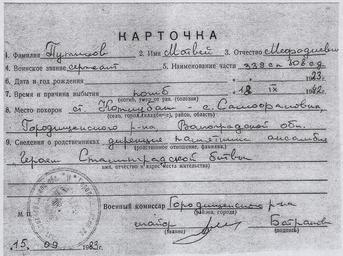 КАРТОЧКА
1. Фамилия Путилов 2. Имя Матвей 3. Отчество Мефодиевич
4. Воинское звание сержант 5. Наименование части 339сп 308сд
6. Дата год рождения 23.
7. Время и причина выбытия погиб 18 IX 1942
(погиб, умер от ран. (болезни)
8. Место похорон ст. Котлубань - с. Самофаловка,
(село, город, район, область)
Городищенского р-на Волгоградской обл.
9. Сведения о родственниках дирекция ансамбля
(родственное отношение, фамилия,
героям Сталинградской битвы
имя, отчество и адрес места жительства)
Военный комиссар Городищенского р-на
(района, города)
М. П. майор
(звание) (подпись)
15. 09 1983г.